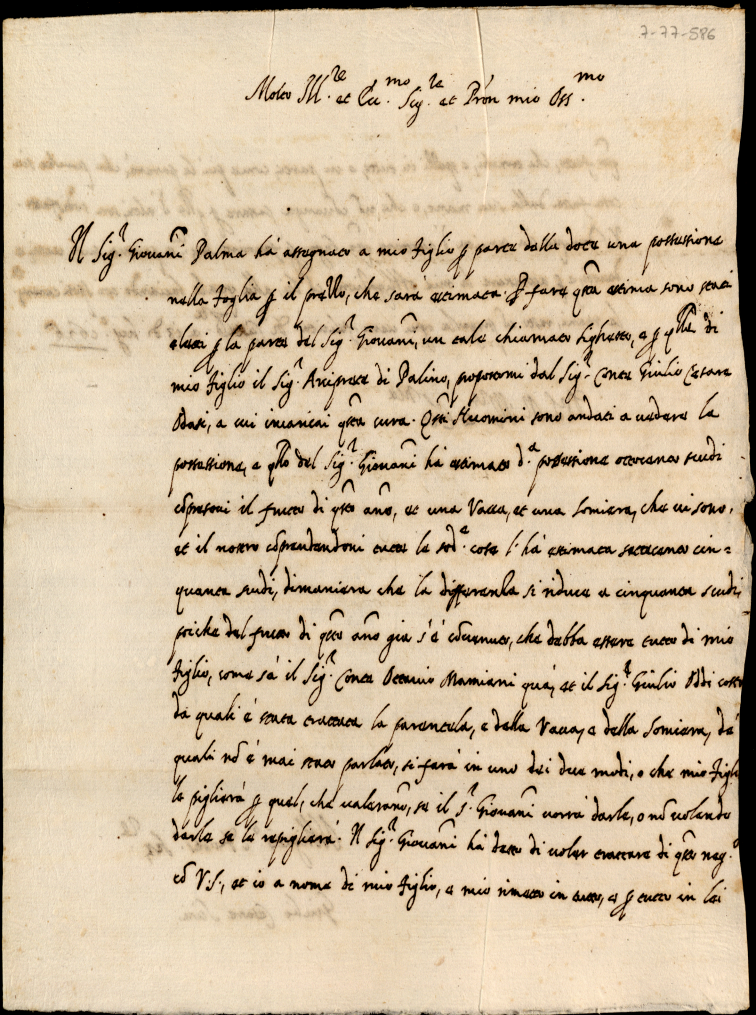 7-77-586
Molto Ill.re et Ecc.mo Sig.re et Pron mio Oss.mo
Il Sig.r Giovañi Palma ha' assegnato a mio figlio p parte della dote una possessione
nella foglia p il prezzo, che sara' estimata. P fare q̃ta estima sono stati
eletti p la parte del Sig.r Giovañi, un tale chiamato Sighetto, e p q̃lla di
mio figlio il Sig.r Arciprete di Palino, propostomi dal Sig.r Conte Giulio Cesare
Odasi, a cui incaricai q̃ta cura. Q̃sti Huomini sono andati a vedere la
possessione, e q̃llo del Sig.r Giovañi ha' estimato d.a possessione ottocento scudi
cõpresovi il frutto di q̃sto año, et una Vacca, et una Somiera, che vi sono,
et il nostro cõprendendovi tutte le sod.e cose l'ha' estimata settecento cin=
quanta scudi, dimaniera che la differenza si riduce a cinquanta scudi,
poiche del frutto di q̃sto año gia s'è cõvenuto, che debba essere tutto di mio
figlio, come sa' il Sig.r Conte Ottavio Mamiani quà, et il Sig.r Giulio Oddi costì
da quali è stata trattata la parentela, e della Vacca, e della Somiera, de'
quali nõ è mai stato parlato, si farà in uno dei due modi, o che mio figlio
le piglierà p quel, che valerano, se il S.r Giovañi vorrà darle, o nõ volendo
darle se le ripiglierà. Il Sig.r Giovañi ha' detto di voler trattare di q̃sto neg.o
cõ V.S., et io a nome di mio figlio, e mio rimetto in tutto, e p tutto in lei